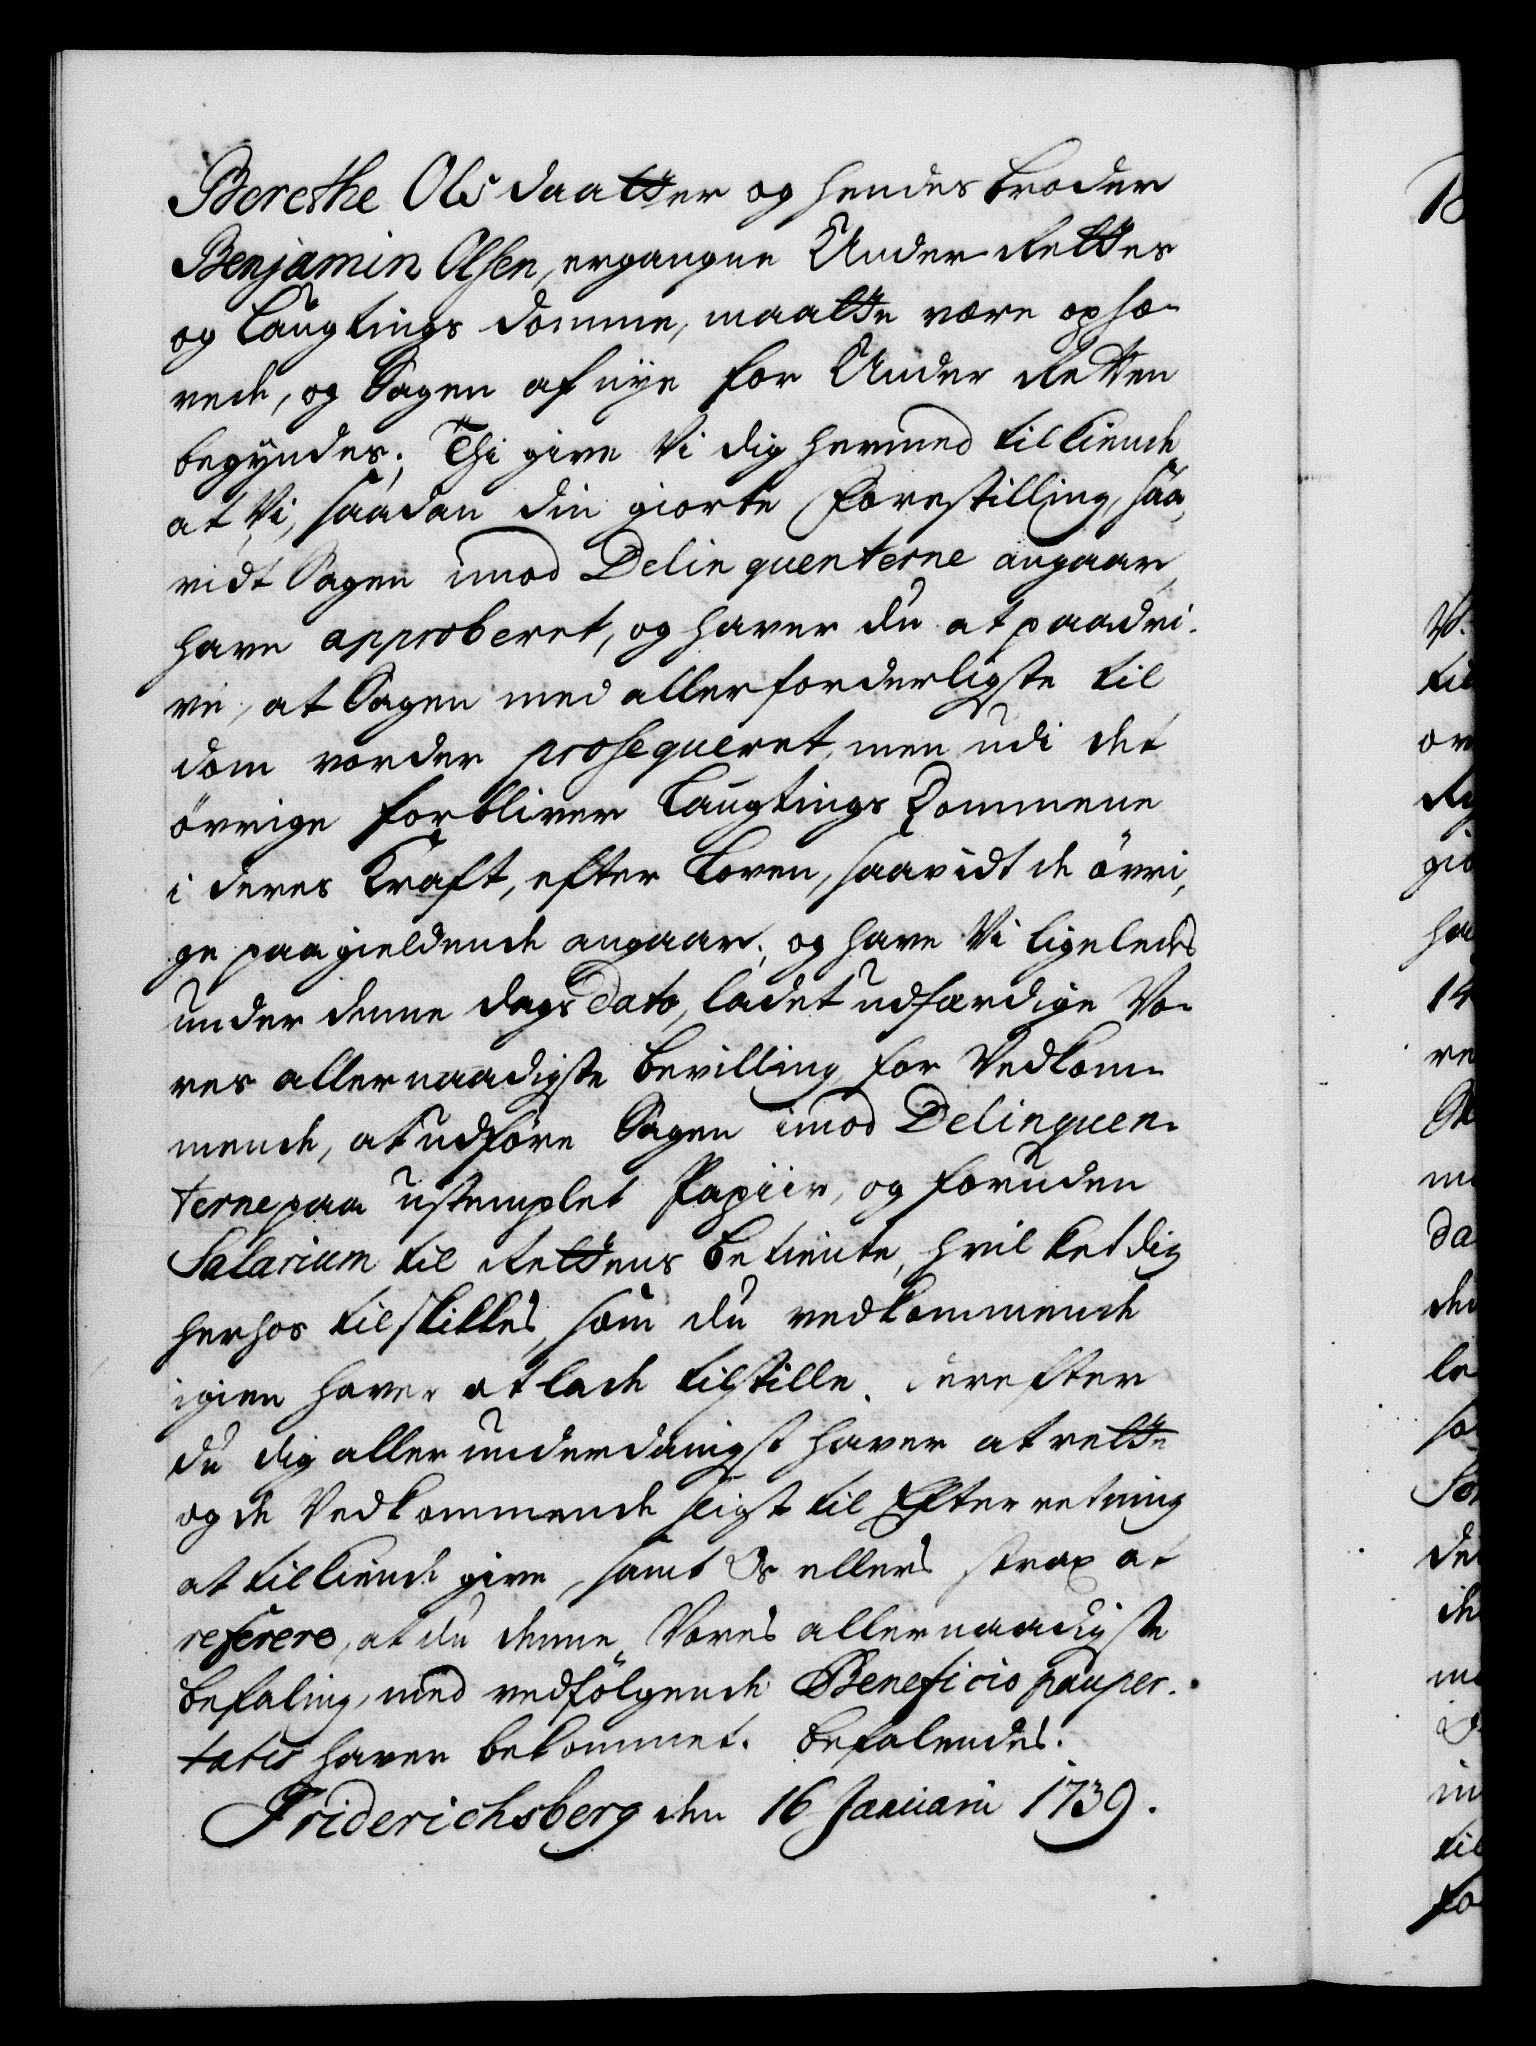 Berethe Olsdaatter og hendes broder
Benjamin Olsen, ergangne Under Rettes
og Laugtings Domme, maatte være ophæ-
vede, og Sagen af nye for Under Retten
begyndes; Thi give Vi dig hermed tilkiende
at Vi, saadan din giorte Forestilling, saa,
vidt Sagen imod Delinquenterne angaar,
have approberet, og haver du at paadri-
ve, at Sagen med allerforderligste til
dom vorder prosequeret, men udi det
övrige forbliver Laugtings Dommene
i deres Kraft, efter Loven, saavidt de övri,
ge paagieldende angaar; og have Vi ligeledes
under denne dags Dato, ladet udfærdige Vo-
res allernaadigste bevilling for Vedkom-
mende, at udföre Sagen imod Delinquen-
terne paa ustemplet Papiir, og foruden
Salarium til Rettens betiente, hvilket dig
herhos tilskikkes, som du vedkommende
igien haver at lade tilstille. Derefter
du dig allerunderdanigst haver at rette
og de Vedkommende sligt til Efterretning
at tilkiende give, samt Os ellers strax at
referere, at du denne Vores allernaadigste
befaling, med vedfölgende Beneficio pauper-
tatis haver bekommet. Befalendes.
Friderichsberg den 16 Januarii 1739.